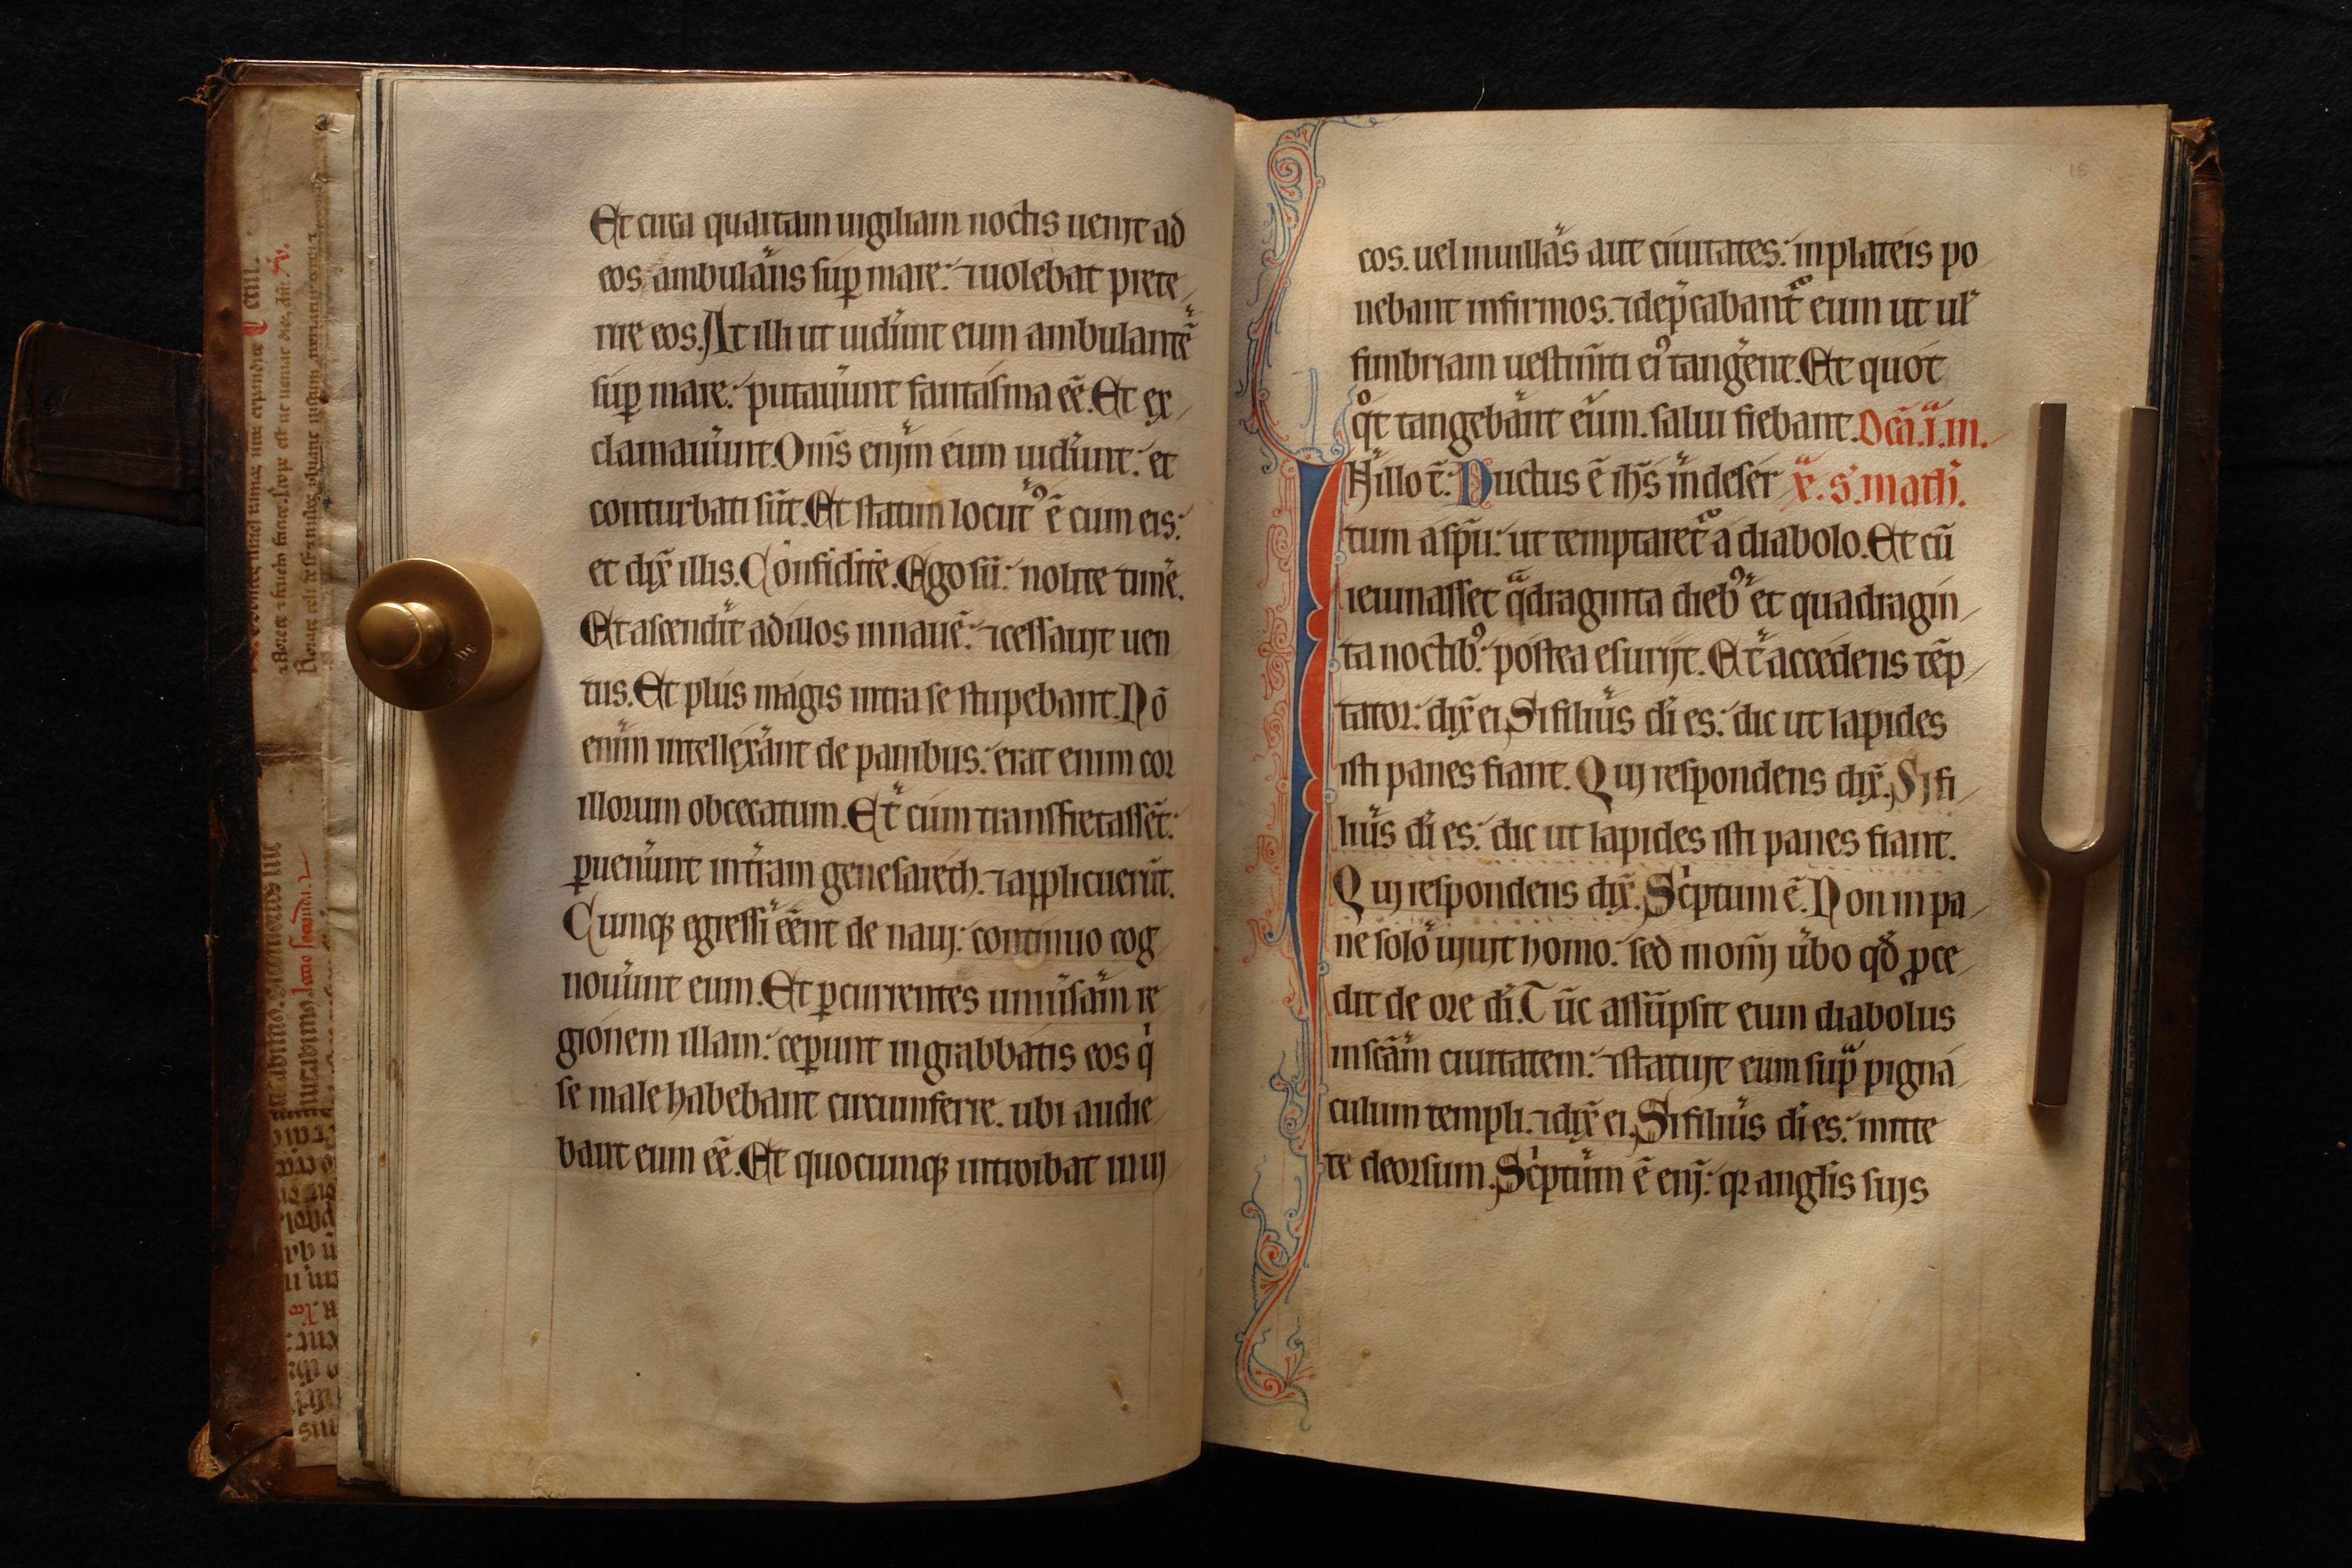 Et circa quartam uigiliam noctis uenit ad
eos ambulans sup̱ mare: ⁊ uolebat prete
rire eos. At illi ut uidr̄unt eum ambulantē
sup̱ mare: putau̅unt fantasma eē. Et ex
clamau̅unt. Oms̄ enim eum uider̄unt: et
conturbati sūt. Et statim locutꝰ ē cum eis:
et dix̄ illis. Confidite. Ego sū: nolite timē.
Et ascendit ad illos in nauē: ⁊ cessauit uen
tus. Et plus magis intra se stupebant. Nō
enim intellex̄ant de panibus: erat enim cor
illorum obcecatum. Et cum transfretassēt:
ꝑuen̄unt in tr̄am genesareth. ⁊ applicuerūt.
Cumqꝫ egressi eēnt de naui: continuo cog
nou̅unt eum. Et ꝑcurrentes uniūsam re
gionem illam: ceꝑunt in grabbatis eos q̇
se male habebant circumferre. ubi audie
bant eum eē. Et quocumqꝫ introibat in ui
16
cos. uel in uillas aut ciuitates: in plateis po
nebant infirmos. ⁊ dep̄cabant᷑ eum ut ul̄
fimbriam uestim̄ti eiꝰ tanḡent. Et quot
qͦt tangebant eum. salui fiebant. Dcā .i. in
In illo t̄: Ductus ē ih̄s in deser x̄. s. math̄.
tum a sp̄u: ut temptaret᷑ a diabolo. Et cū
ieiunasset qͣdraginta diebꝰ et quadragin
ta noctibꝰ: postea esurijt. Et accedens tēp
tator: dix̄ ei. Si filius di̅ es: dic ut lapides
isti panes fiant. Qui respondens dix̄. Si fi
lius di̅ es: dic ut lapides isti panes fiant.
Qui respondens dix̄. Sc̓ptum ē. Non in pa
ne solo uiuit homo: sed in om̄i u̅bo qd̄ ꝓce
dit de ore di̅. Tūc assūpsit eum diabolus
in scām ciuitatem: ⁊ statuit eum sup̄ pigna
culum templi. ⁊ dix̄ ei. Si filius di̅ es: mitte
te deorsum. Sc̓ptum ē eni: qꝛ angl̄is suis